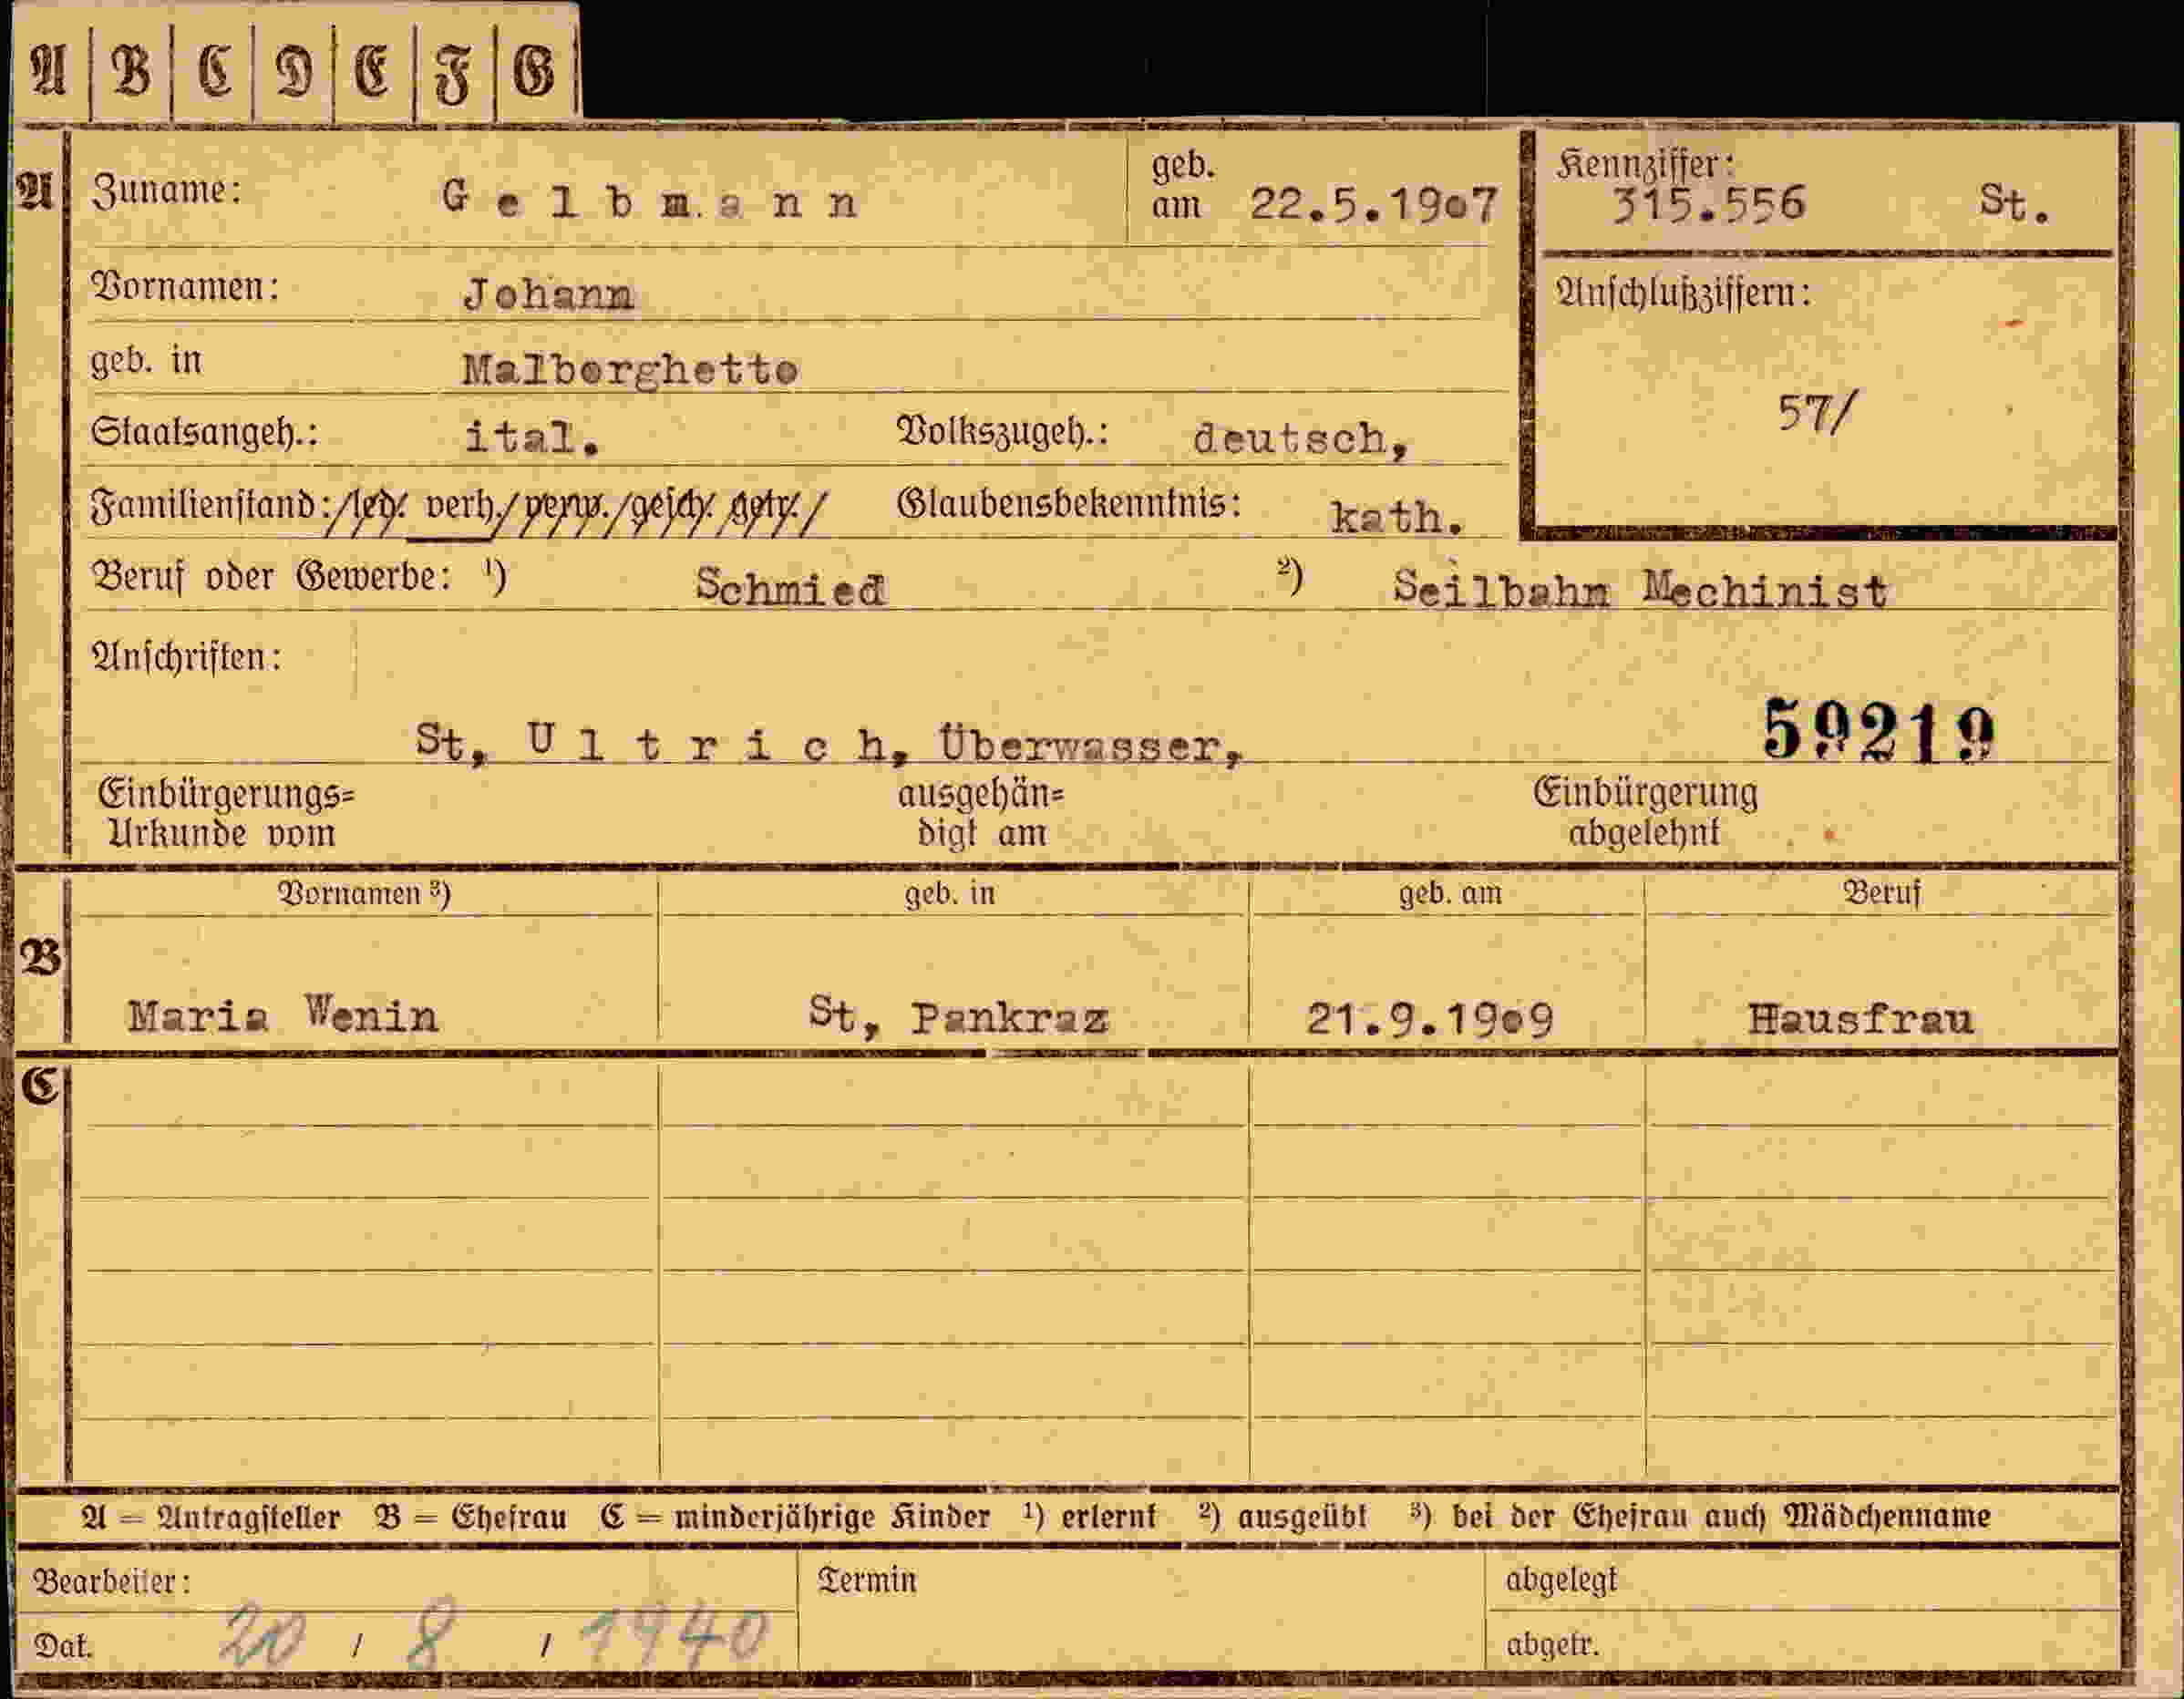 A B C D E F G
A Zuname: Gelbmann geb. am 22.5.1907 Kennziffer: 315.556 St.
Vornamen: Johann Anschlußziffern:
geb. in Malborghetto
57/
Staatsangeh.: ital. Volkszugeh.: deutsch,
Familienstand: led. verh./verw./gesch. getr./ Glaubensbekenntnis: kath.
Beruf oder Gewerbe: ¹) Schmied ²) Seilbahn Mechinist
Anschriften:
St, Ultrich, Überwasser, 59219
Einbürgerungs= ausgehän= Einbürgerung
Urkunde vom digt am abgelehnt
Vornamen ³) geb. in geb. am Beruf
B
Maria Wenin St, Pankraz 21.9.1909 Hausfrau
C
A = Antragsteller B = Ehefrau C = minderjährige Kinder ¹) erlernt ²) ausgeübt ³) bei der Ehefrau auch Mädchenname
Bearbeiter: Termin abgelegt
Dat. 20 / 8 / 1940 abgetr.